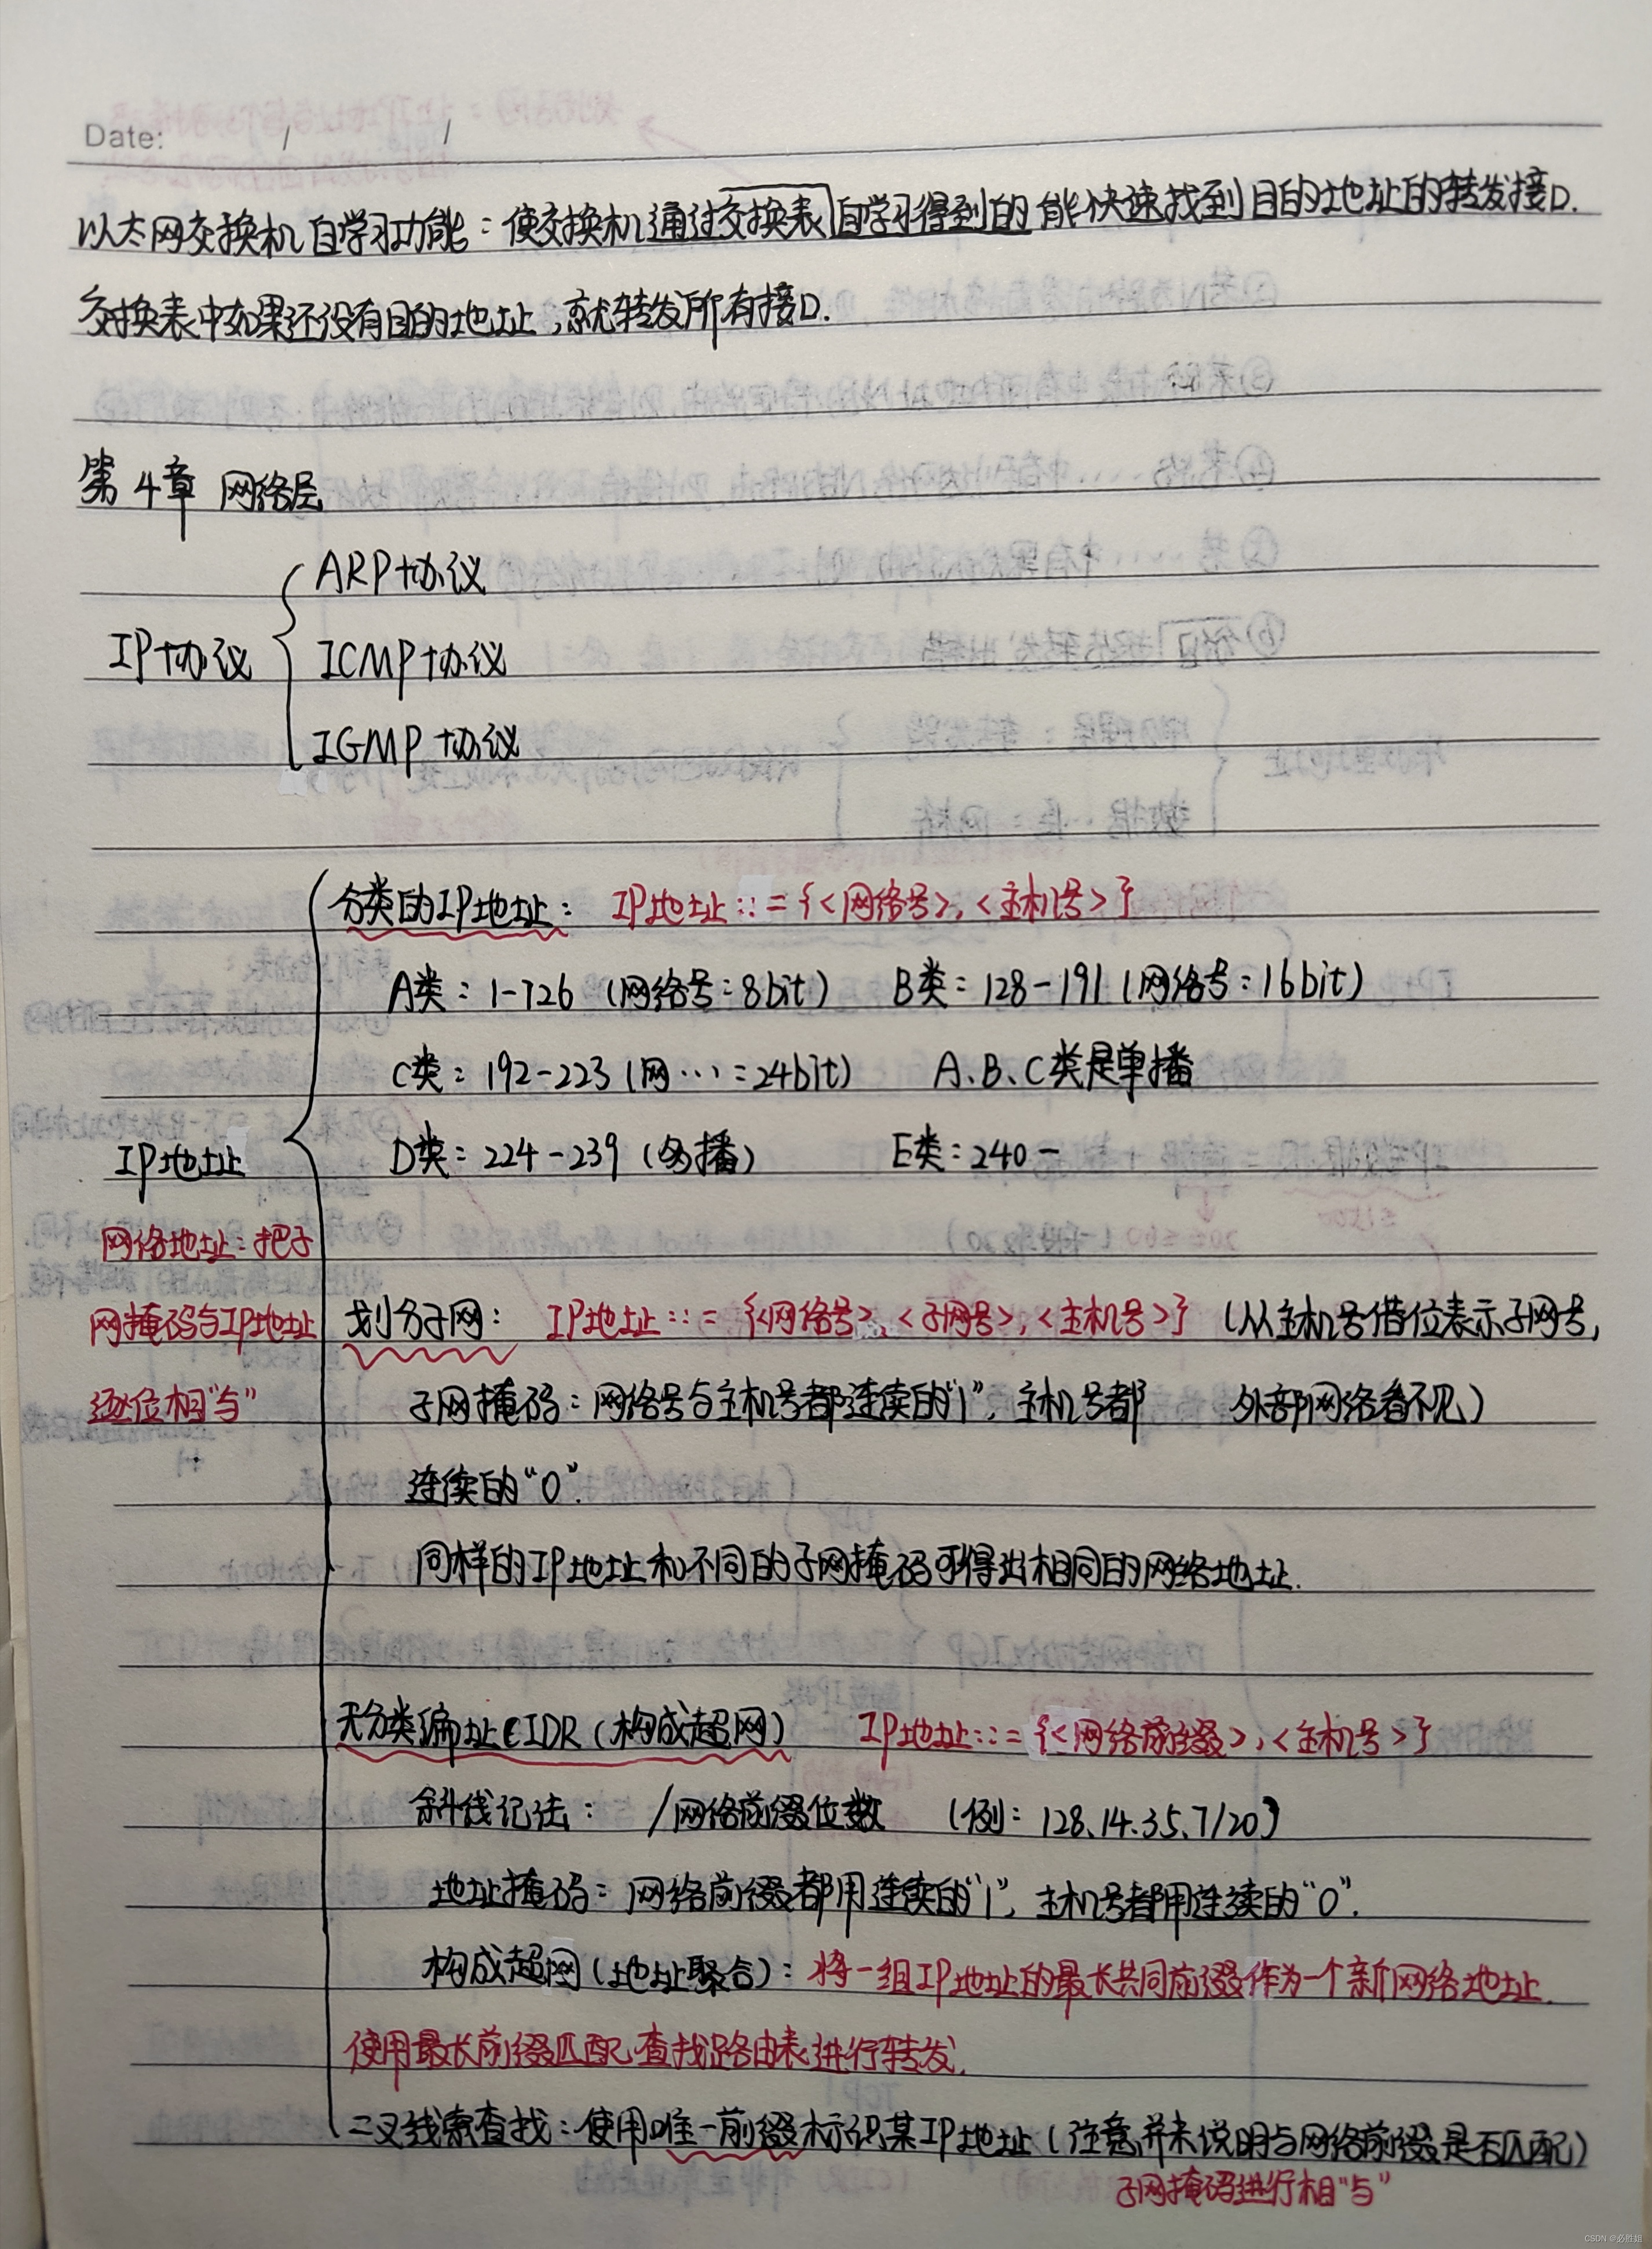 Date: / /
以太网交换机自学习功能：使交换机通过交换表自学习得到的能快速找到目的地址的转发接口.
交换表中如果还没有目的地址,就转发所有接口.
第4章 网络层
ARP协议
IP协议
ICMP协议
IGMP协议
分类的IP地址： IP地址::={<网络号>,<主机号>}
A类：1-126（网络号：8bit） B类：128-191（网络号：16bit）
C类：192-223（网…：24bit） A、B、C类是单播
D类：224-239（多播） E类：240-
IP地址
网络地址：把子
网掩码与IP地址
逐位相“与”
划分子网： IP地址::={<网络号>,<子网号>,<主机号>}（从主机号借位表示子网号,
外部网络看不见）
子网掩码：网络号与主机号都连续的“1”，主机号都
连续的“0”.
同样的IP地址和不同的子网掩码可得出相同的网络地址.
无分类编址CIDR（构成超网） IP地址::={<网络前缀>,<主机号>}
斜线记法： /网络前缀位数 （例：128.14.35.7/20）
地址掩码：网络前缀都用连续的“1”，主机号都用连续的“0”.
构成超网（地址聚合）：将一组IP地址的最长共同前缀作为一个新网络地址.
使用最长前缀匹配查找路由表进行转发.
二叉线索查找：使用唯一前缀标识某IP地址（注意并未说明与网络前缀是否匹配）
子网掩码进行相“与”
CSDN @必胜姐